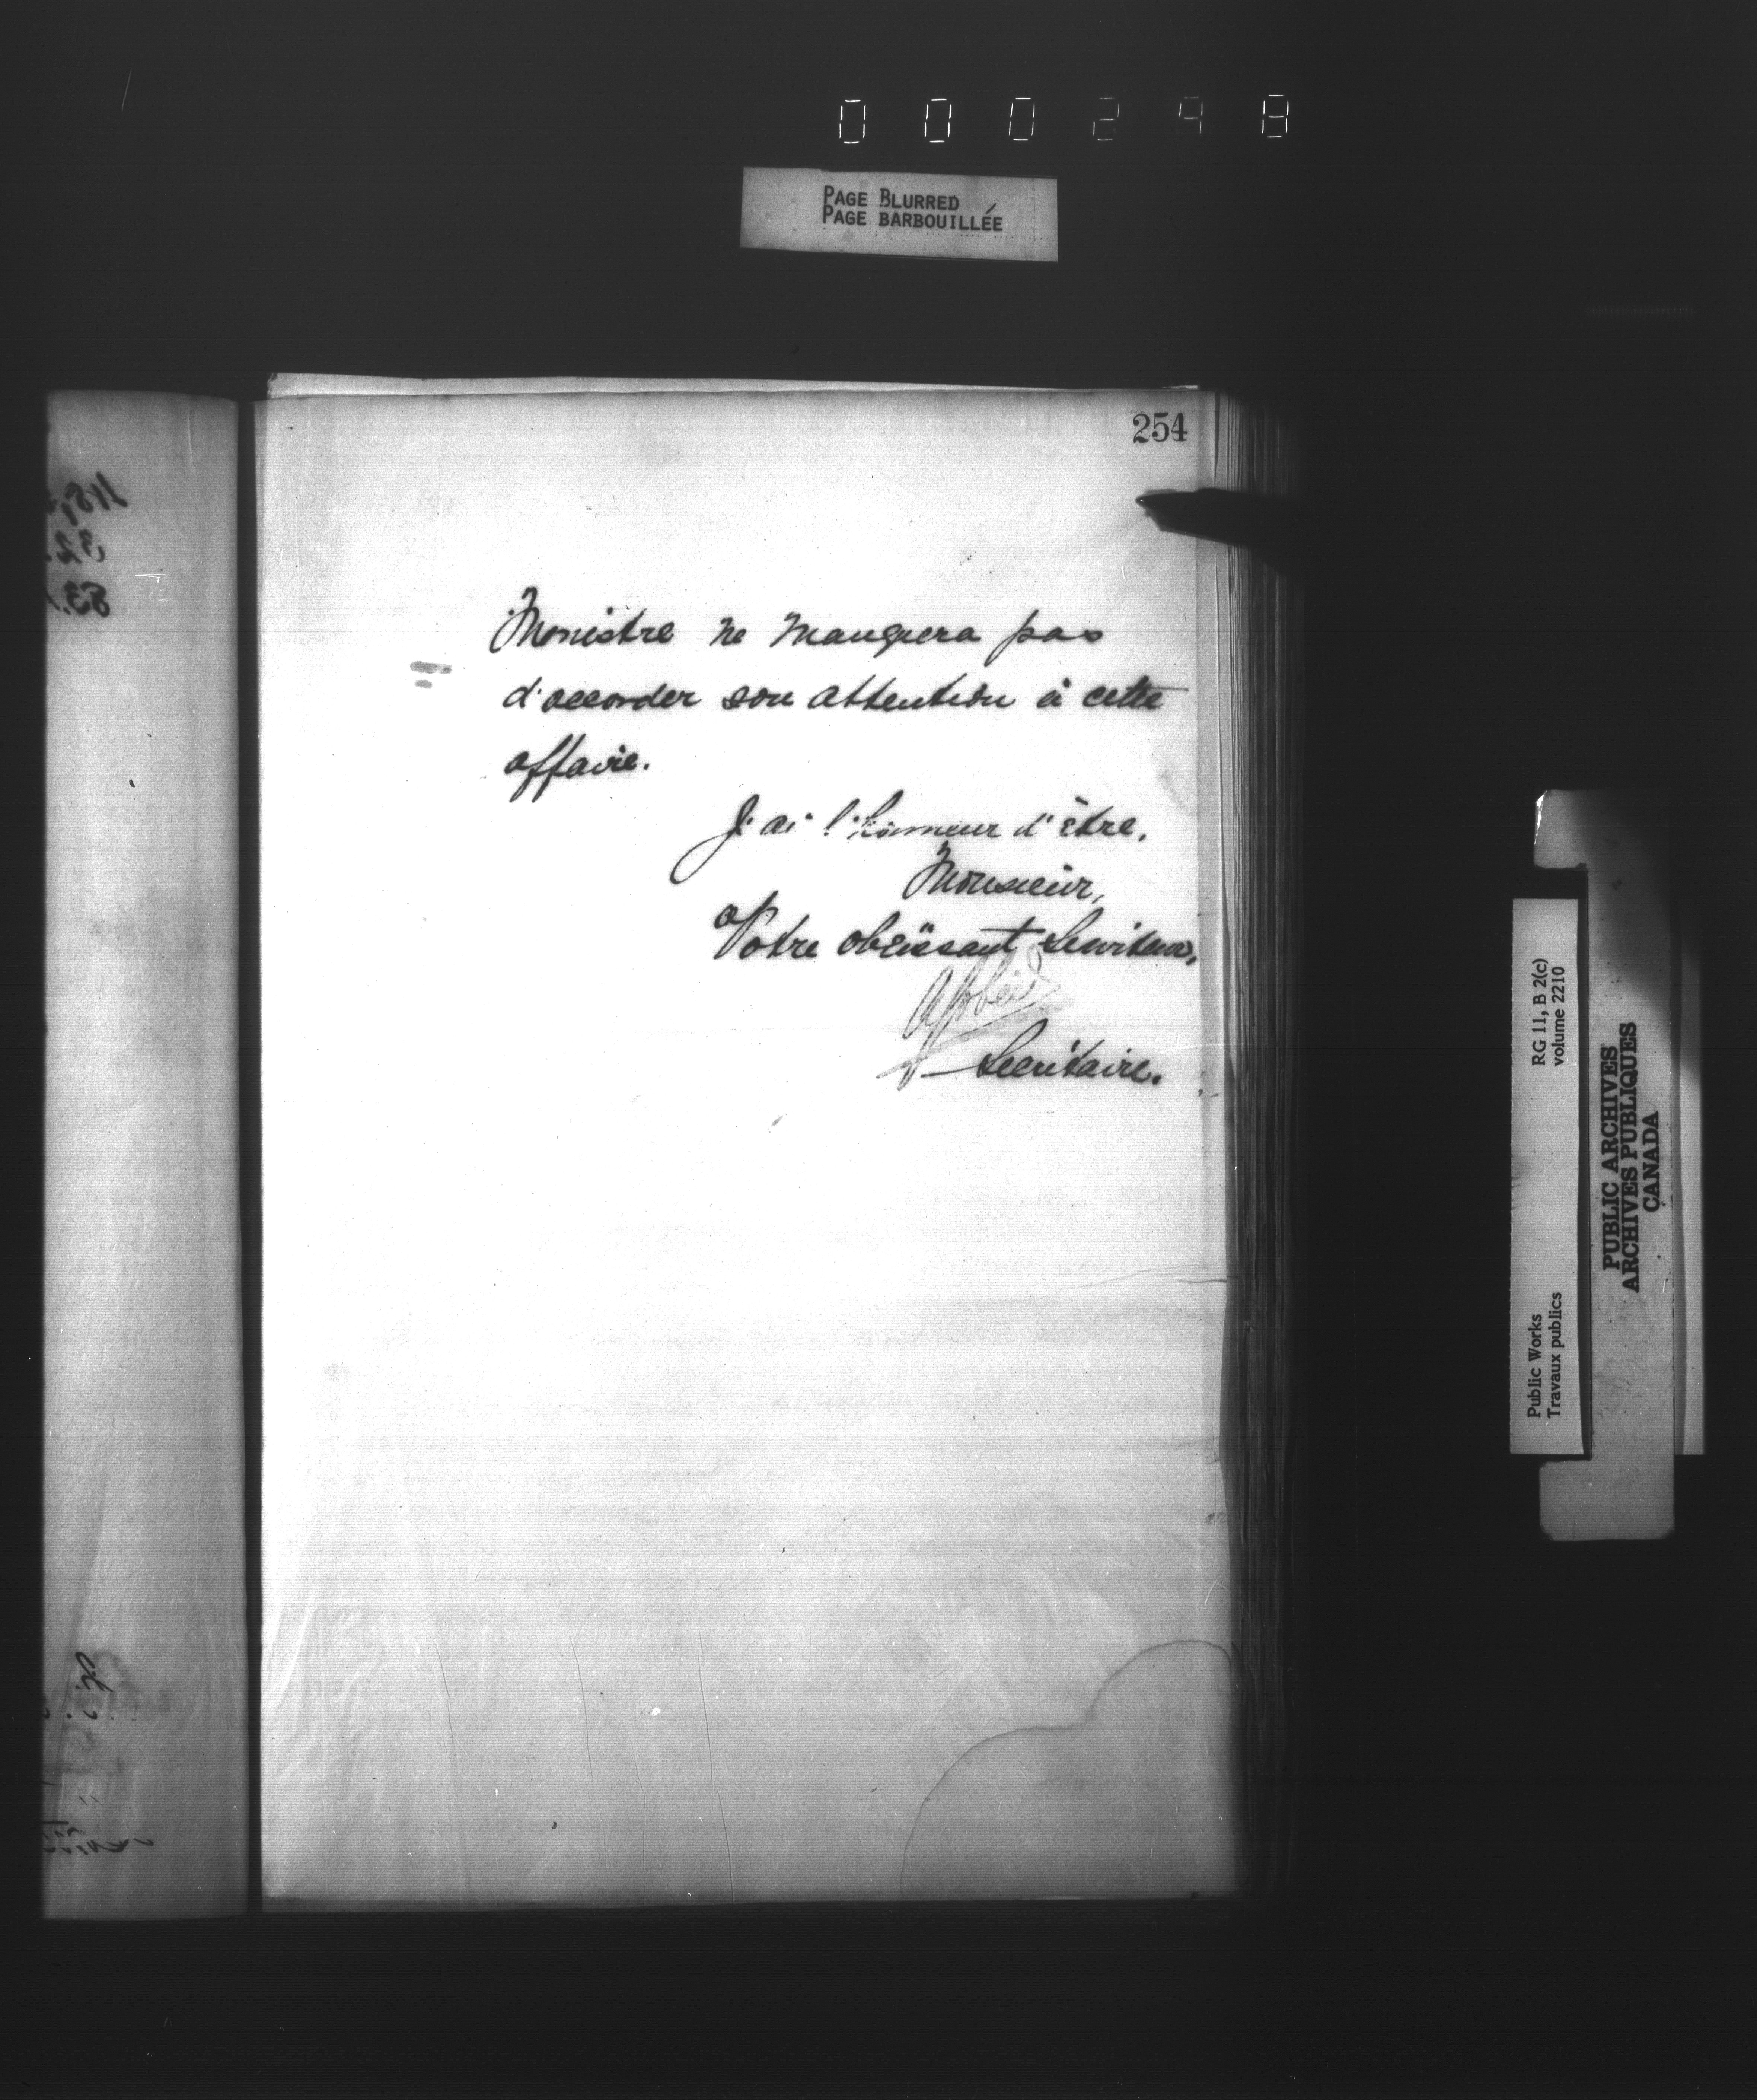 000298
PAGE BLURRED
PAGE BARBOUILLÉE
254
Ministre ne manquera pas
d'accorder son attention à cette
affaire.
J'ai l'honneur d'être,
Monsieur,
Votre obéissant Serviteur,
Secrétaire.
RG 11, B 2(c)
volume 2210
Public Works
Travaux publics
PUBLIC ARCHIVES
ARCHIVES PUBLIQUES
CANADA